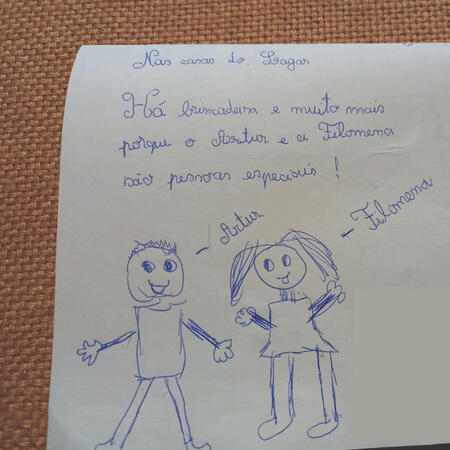 Nas casas do Lagar
Há brincadeira e muito mais
porque o Artur e a Filomena
são pessoas especiais !
- Artur
- Filomena